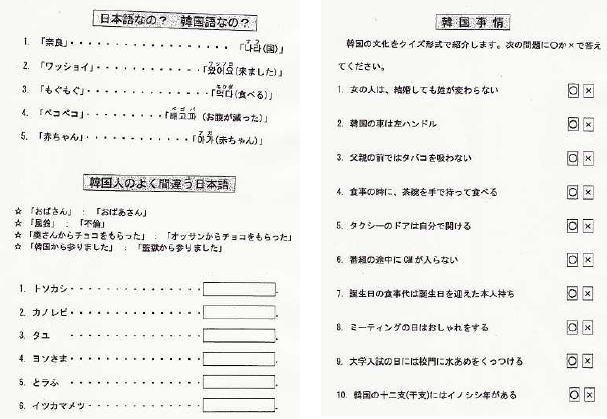 日本語なの? 韓国語なの?
1. 「奈良」・・・・・・・・・・・・・・・・「나라(国)」
2. 「ワッショイ」・・・・・・・・・・・・「왔어요(来ました)」
3. 「もぐもぐ」・・・・・・・・・・・・・「먹다(食べる)」
ペゴパ
4. 「ペコペコ」・・・・・・・・「배고파 (お腹が減った)」
5. 「赤ちゃん」・・・・・・・・・・・「아가(赤ちゃん)」
韓国人のよく間違う日本語
☆ 「おばさん」 : 「おばあさん」
☆ 「風鈴」 : 「不倫」
☆ 「奥さんからチョコをもらった」 : 「オッサンからチョコをもらった」
☆ 「韓国から参りました」 : 「監獄から参りました」
1. トソカシ・・・・・・・・・・・・・・
2. カノレビ・・・・・・・・・・・・・・
3. タユ ・・・・・・・・・・・・・・
4. ヨソさま・・・・・・・・・・・・・・
5. とラふ ・・・・・・・・・・・・・・
6. イツカマメツ・・・・・・・・・・・・
韓国事情
韓国の文化をクイズ形式で紹介します。次の問題に〇か×で答え
てください。
1. 女の人は、結婚しても姓が変わらない 〇 ×
2. 韓国の車は左ハンドル 〇 ×
3. 父親の前ではタバコを吸わない 〇 ×
4. 食事の時に、茶碗を手で持って食べる 〇 ×
5. タクシーのドアは自分で開ける 〇 ×
6. 番組の途中にCMが入らない 〇 ×
7. 誕生日の食事代は誕生日を迎えた本人持ち 〇 ×
8. ミーティングの日はおしゃれをする 〇 ×
9. 大学入試の日には校門に水あめをくっつける 〇 ×
10. 韓国の十二支(干支)にはイノシシ年がある 〇 ×